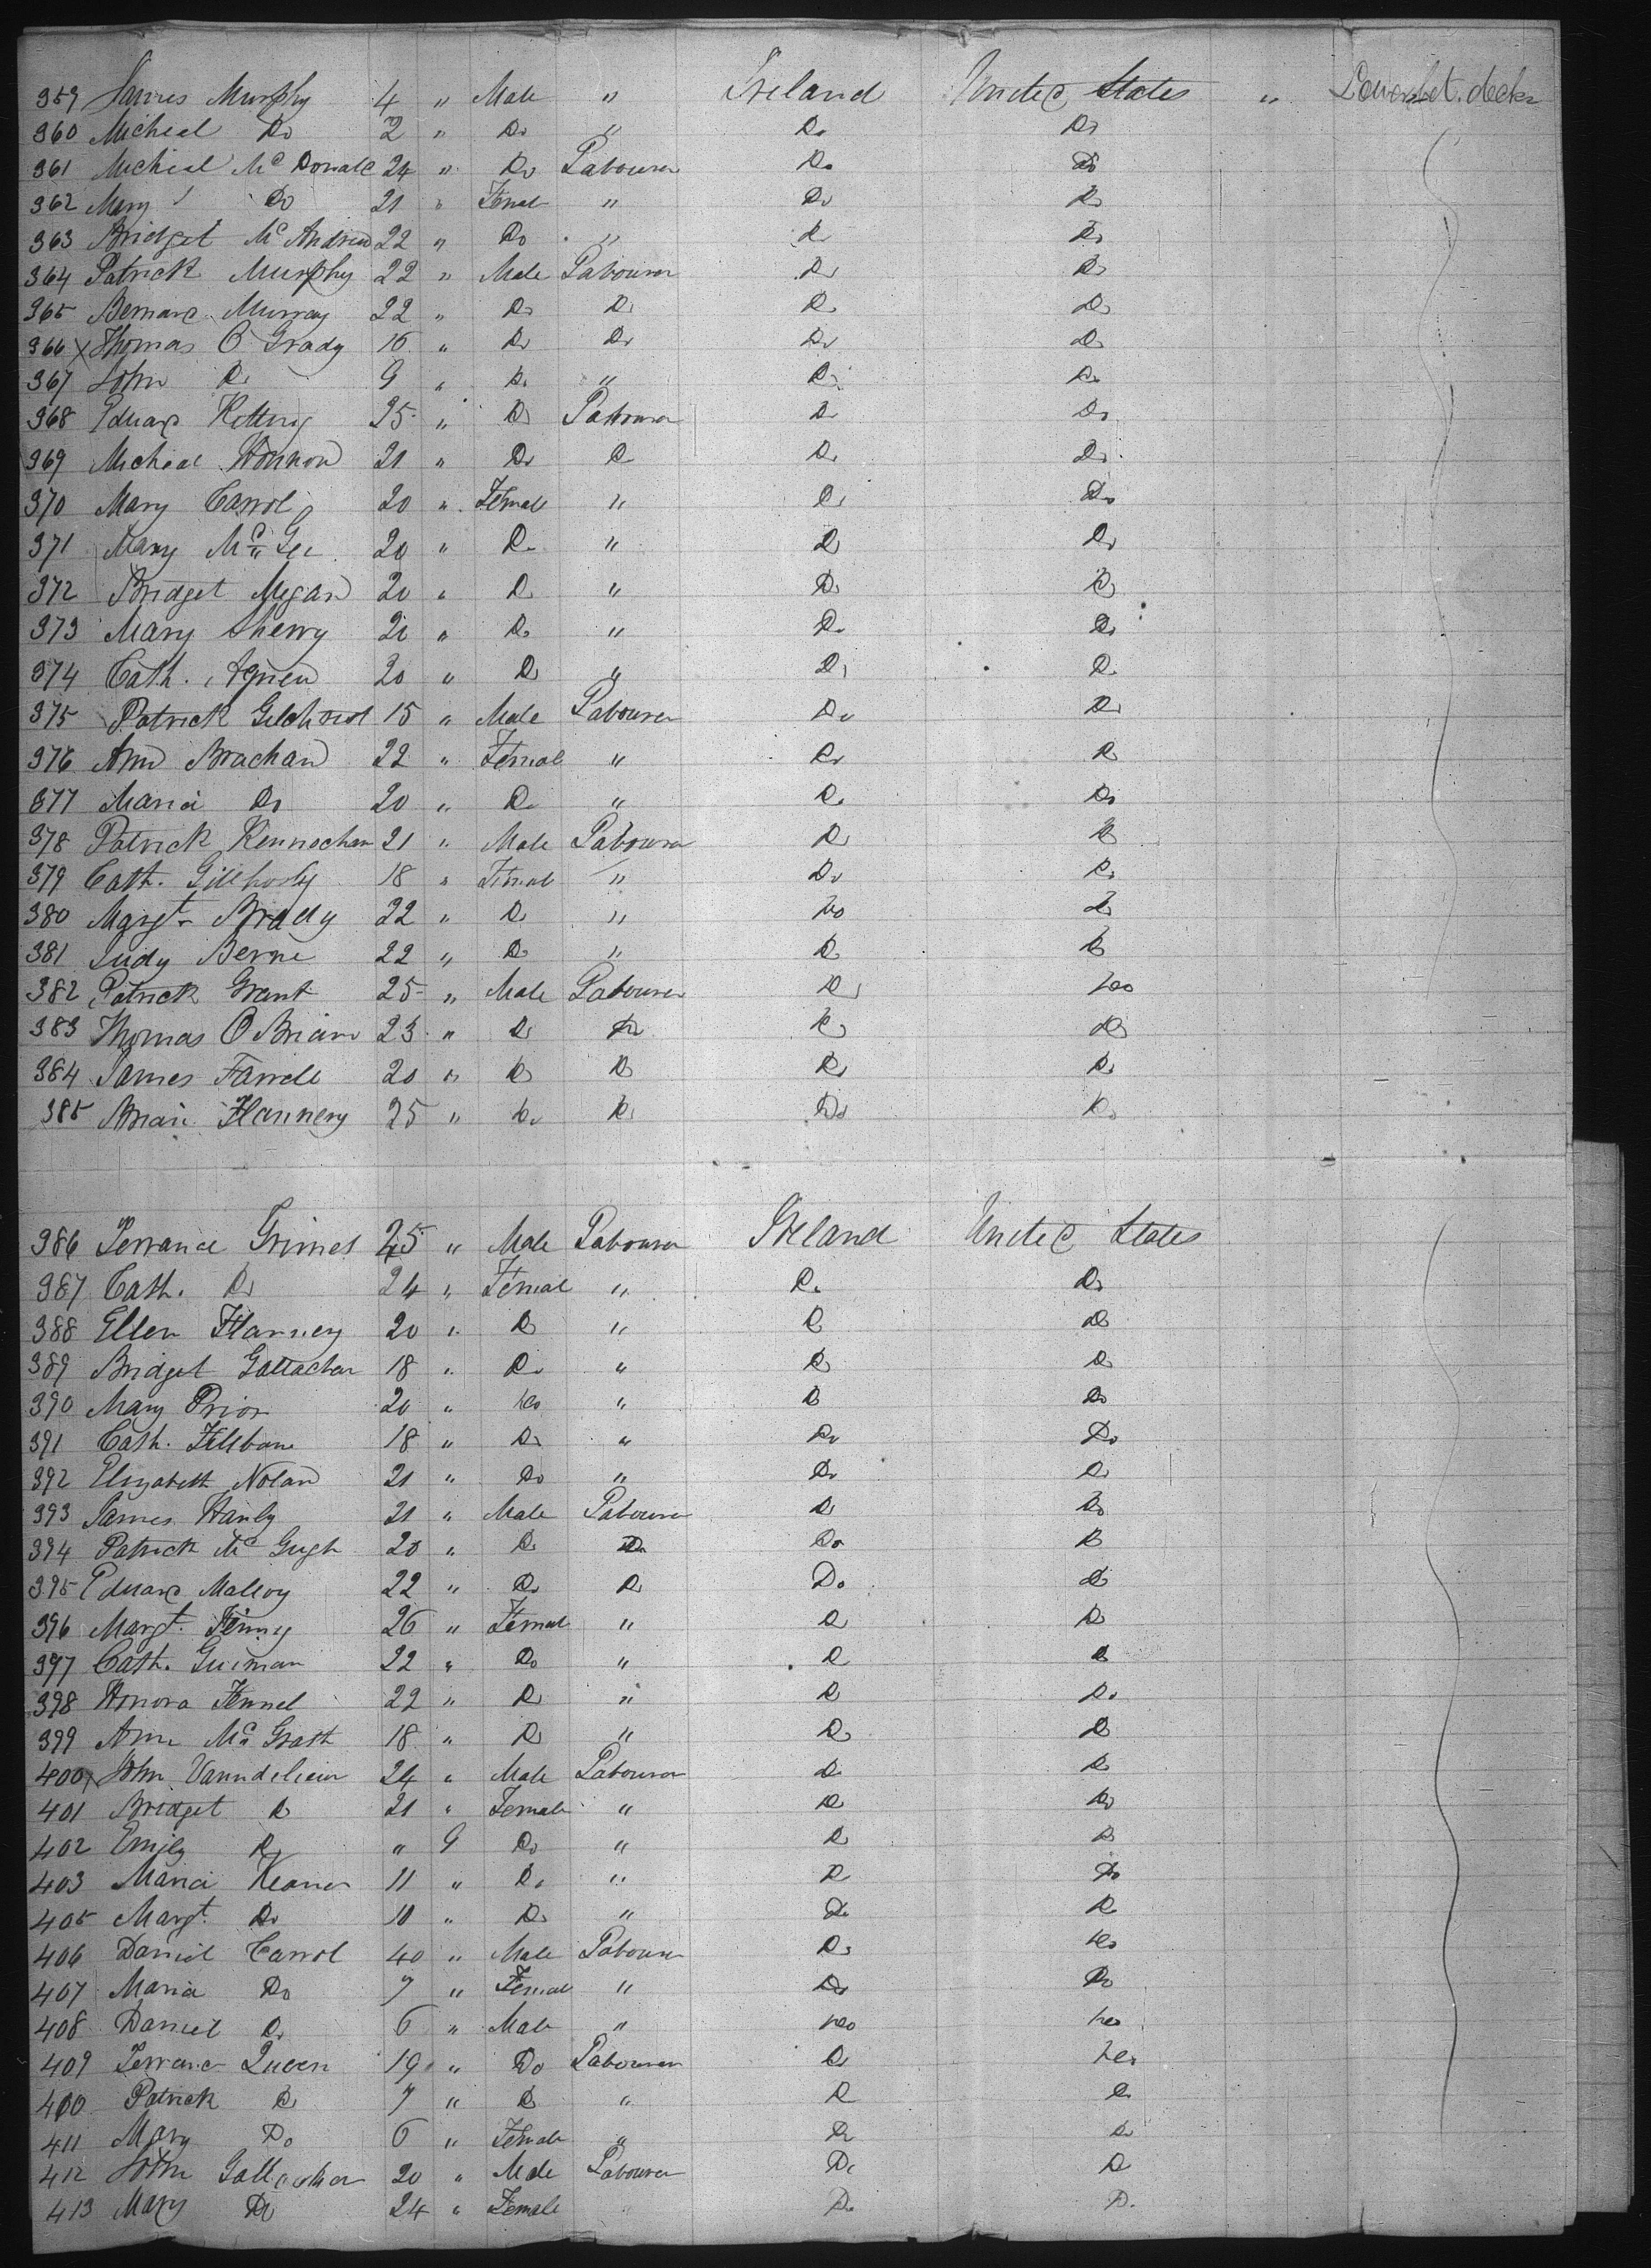 359 James Murphy 4 " Male " Ireland United States " Lower bet. decks
360 Micheal Do 2 " Do " Do Do
361 Micheal Mc Donald 24 " Do Labourer Do Do
362 Mary Do 21 " Female " Do Do
363 Bridget Mc Andrew 22 " Do " Do Do
364 Patrick Murphy 22 " Male Labourer Do Do
365 Bernard Murray 22 " Do Do Do Do
366 x Thomas O Grady 16 " Do Do Do Do
367 John Do 9 " Do " Do Do
368 Edward 25 " Do Labourer Do Do
369 Micheal Hannon 21 " Do Do Do Do
370 Mary Carrol 20 " Female " Do Do
371 Mary Mc Gee 20 " Do " Do Do
372 Bridget Megan 20 " Do " Do Do
373 Mary Sherry 20 " Do " Do Do
374 Cath. Agnew 20 " Do " Do Do
375 Patrick Gilchrist 15 " Male Labourer Do Do
376 Ann Brachan 22 " Female " Do Do
377 Maria Do 20 " Do " Do Do
378 Patrick Kennochan 21 " Male Labourer Do Do
379 Cath. Gillhooly 18 " Female " Do Do
380 Margt. Brady 22 " Do " Do Do
381 Judy Berne 22 " Do " Do Do
382 Patrick Grant 25 " Male Labourer Do Do
383 Thomas O Brian 23 " Do Do Do Do
384 James Farrell 20 " Do Do Do Do
385 Brian Flannery 25 " Do Do Do Do
386 Terrance Grimes 25 " Male Labourer Ireland United States
387 Cath. Do 24 " Female " Do Do
388 Ellen Flannery 20 " Do " Do Do
389 Bridget Gallachar 18 " Do " Do Do
390 Mary Prior 20 " Do " Do Do
391 Cath. 18 " Do " Do Do
392 Elizabeth Nolan 21 " Do " Do Do
393 James Hanly 21 " Male Labourer Do Do
394 Patrick Mc Gugh 20 " Do Do Do Do
395 Edward Malloy 22 " Do Do Do Do
396 Margt. 26 " Female " Do Do
397 Cath. 22 " Do " Do Do
398 Honora Fennel 22 " Do " Do Do
399 Ann Mc Grath 18 " Do " Do Do
400 x John 24 " Male Labourer Do Do
401 Bridget Do 21 " Female " Do Do
402 Emily Do " 9 Do " Do Do
403 Maria 11 " Do " Do Do
405 Margt. Do 10 " Do " Do Do
406 Daniel Carrol 40 " Male Labourer Do Do
407 Maria Do 7 " Female " Do Do
408 Daniel Do 6 " Male " Do Do
409 Terrance Queen 19 " Do Labourer Do Do
400 Patrick Do 7 " Do " Do Do
411 Mary Do 6 " Female " Do Do
412 John Gallagher 20 " Male Labourer Do Do
413 Mary Do 24 " Female Do Do